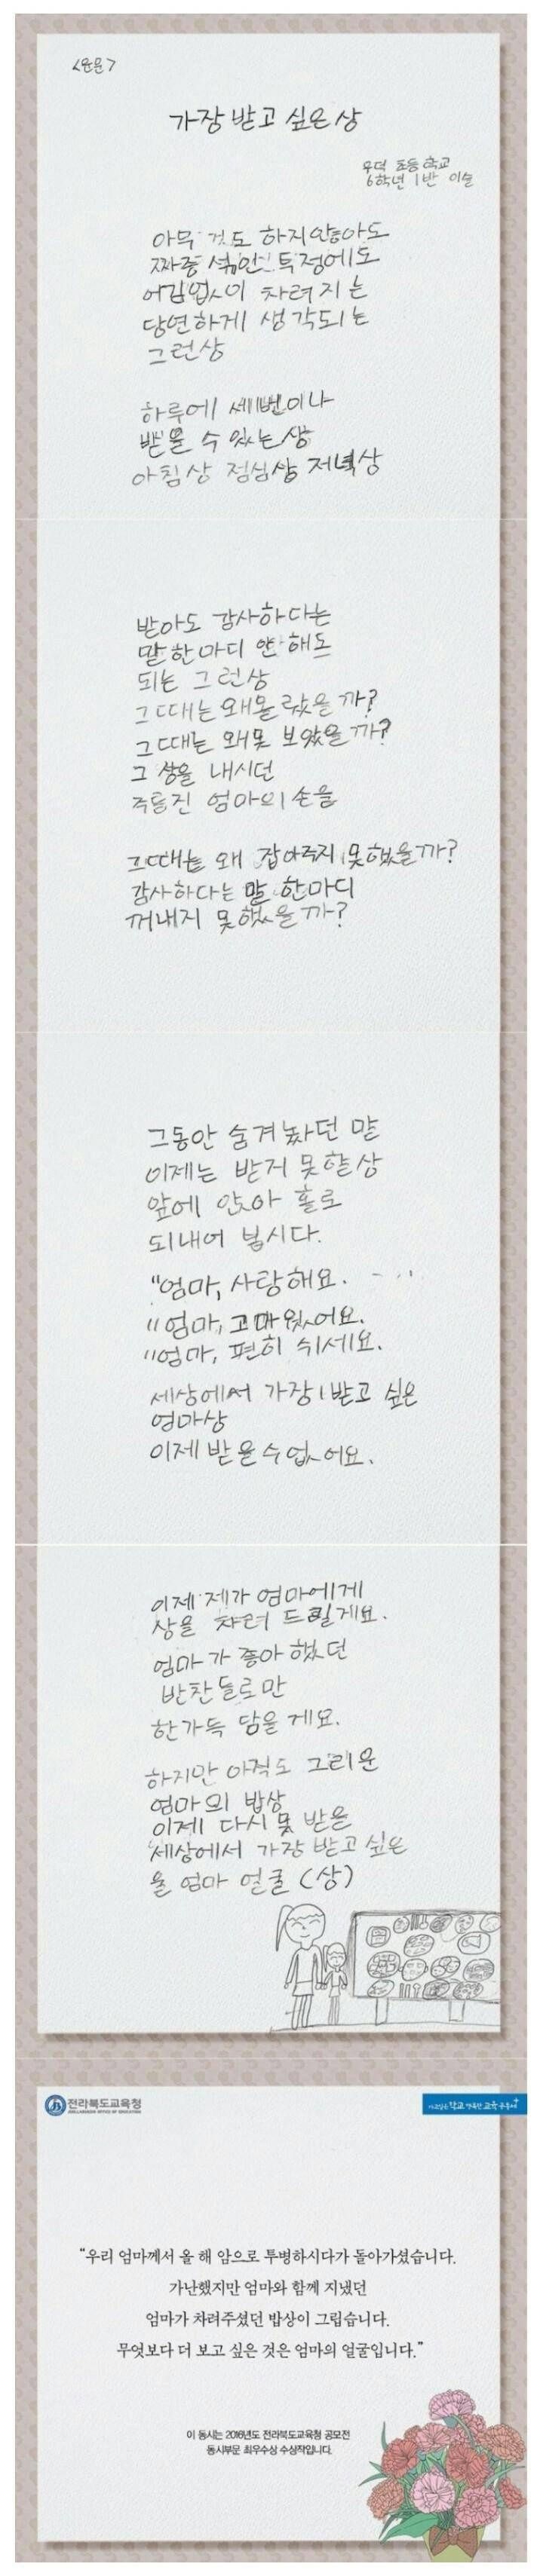 <운문>
가장 받고 싶은 상
우덕 초등학교
6학년 1반 이슬
아무 것도 하지 않아도
짜증 섞인 투정에도
어김없이 차려지는
당연하게 생각되는
그런상
하루에 세번이나
받을 수 있는 상
아침상 점심상 저녁상
받아도 감사하다는
말 한마디 안 해도
되는 그런상
그때는 왜 몰랐을까?
그때는 왜 못 보았을까?
그 상을 내시던
주름진 엄마의 손을
그때는 왜 잡아주지 못했을까?
감사하다는 말 한마디
꺼내지 못했을까?
그동안 숨겨놨던 말
이제는 받지 못할 상
앞에 앉아 홀로
되내어 봅시다.
"엄마, 사랑해요.
"엄마, 고마웠어요.
"엄마, 편히 쉬세요.
세상에서 가장 받고 싶은
엄마상
이제 받을 수 없어요.
이제 제가 엄마에게
상을 차려 드릴게요.
엄마가 좋아했던
반찬들로만
한가득 담을게요.
하지만 아직도 그리운
엄마의 밥상
이제 다시 못 받을
세상에서 가장 받고 싶은
울 엄마 얼굴 (상)
전라북도교육청
JEOLLABUKDO OFFICE OF EDUCATION
가고싶은 학교 행복한 교육 공동체
"우리 엄마께서 올 해 암으로 투병하시다가 돌아가셨습니다.
가난했지만 엄마와 함께 지냈던
엄마가 차려주셨던 밥상이 그립습니다.
무엇보다 더 보고 싶은 것은 엄마의 얼굴입니다."
이 동시는 2016년도 전라북도교육청 공모전
동시부문 최우수상 수상작입니다.